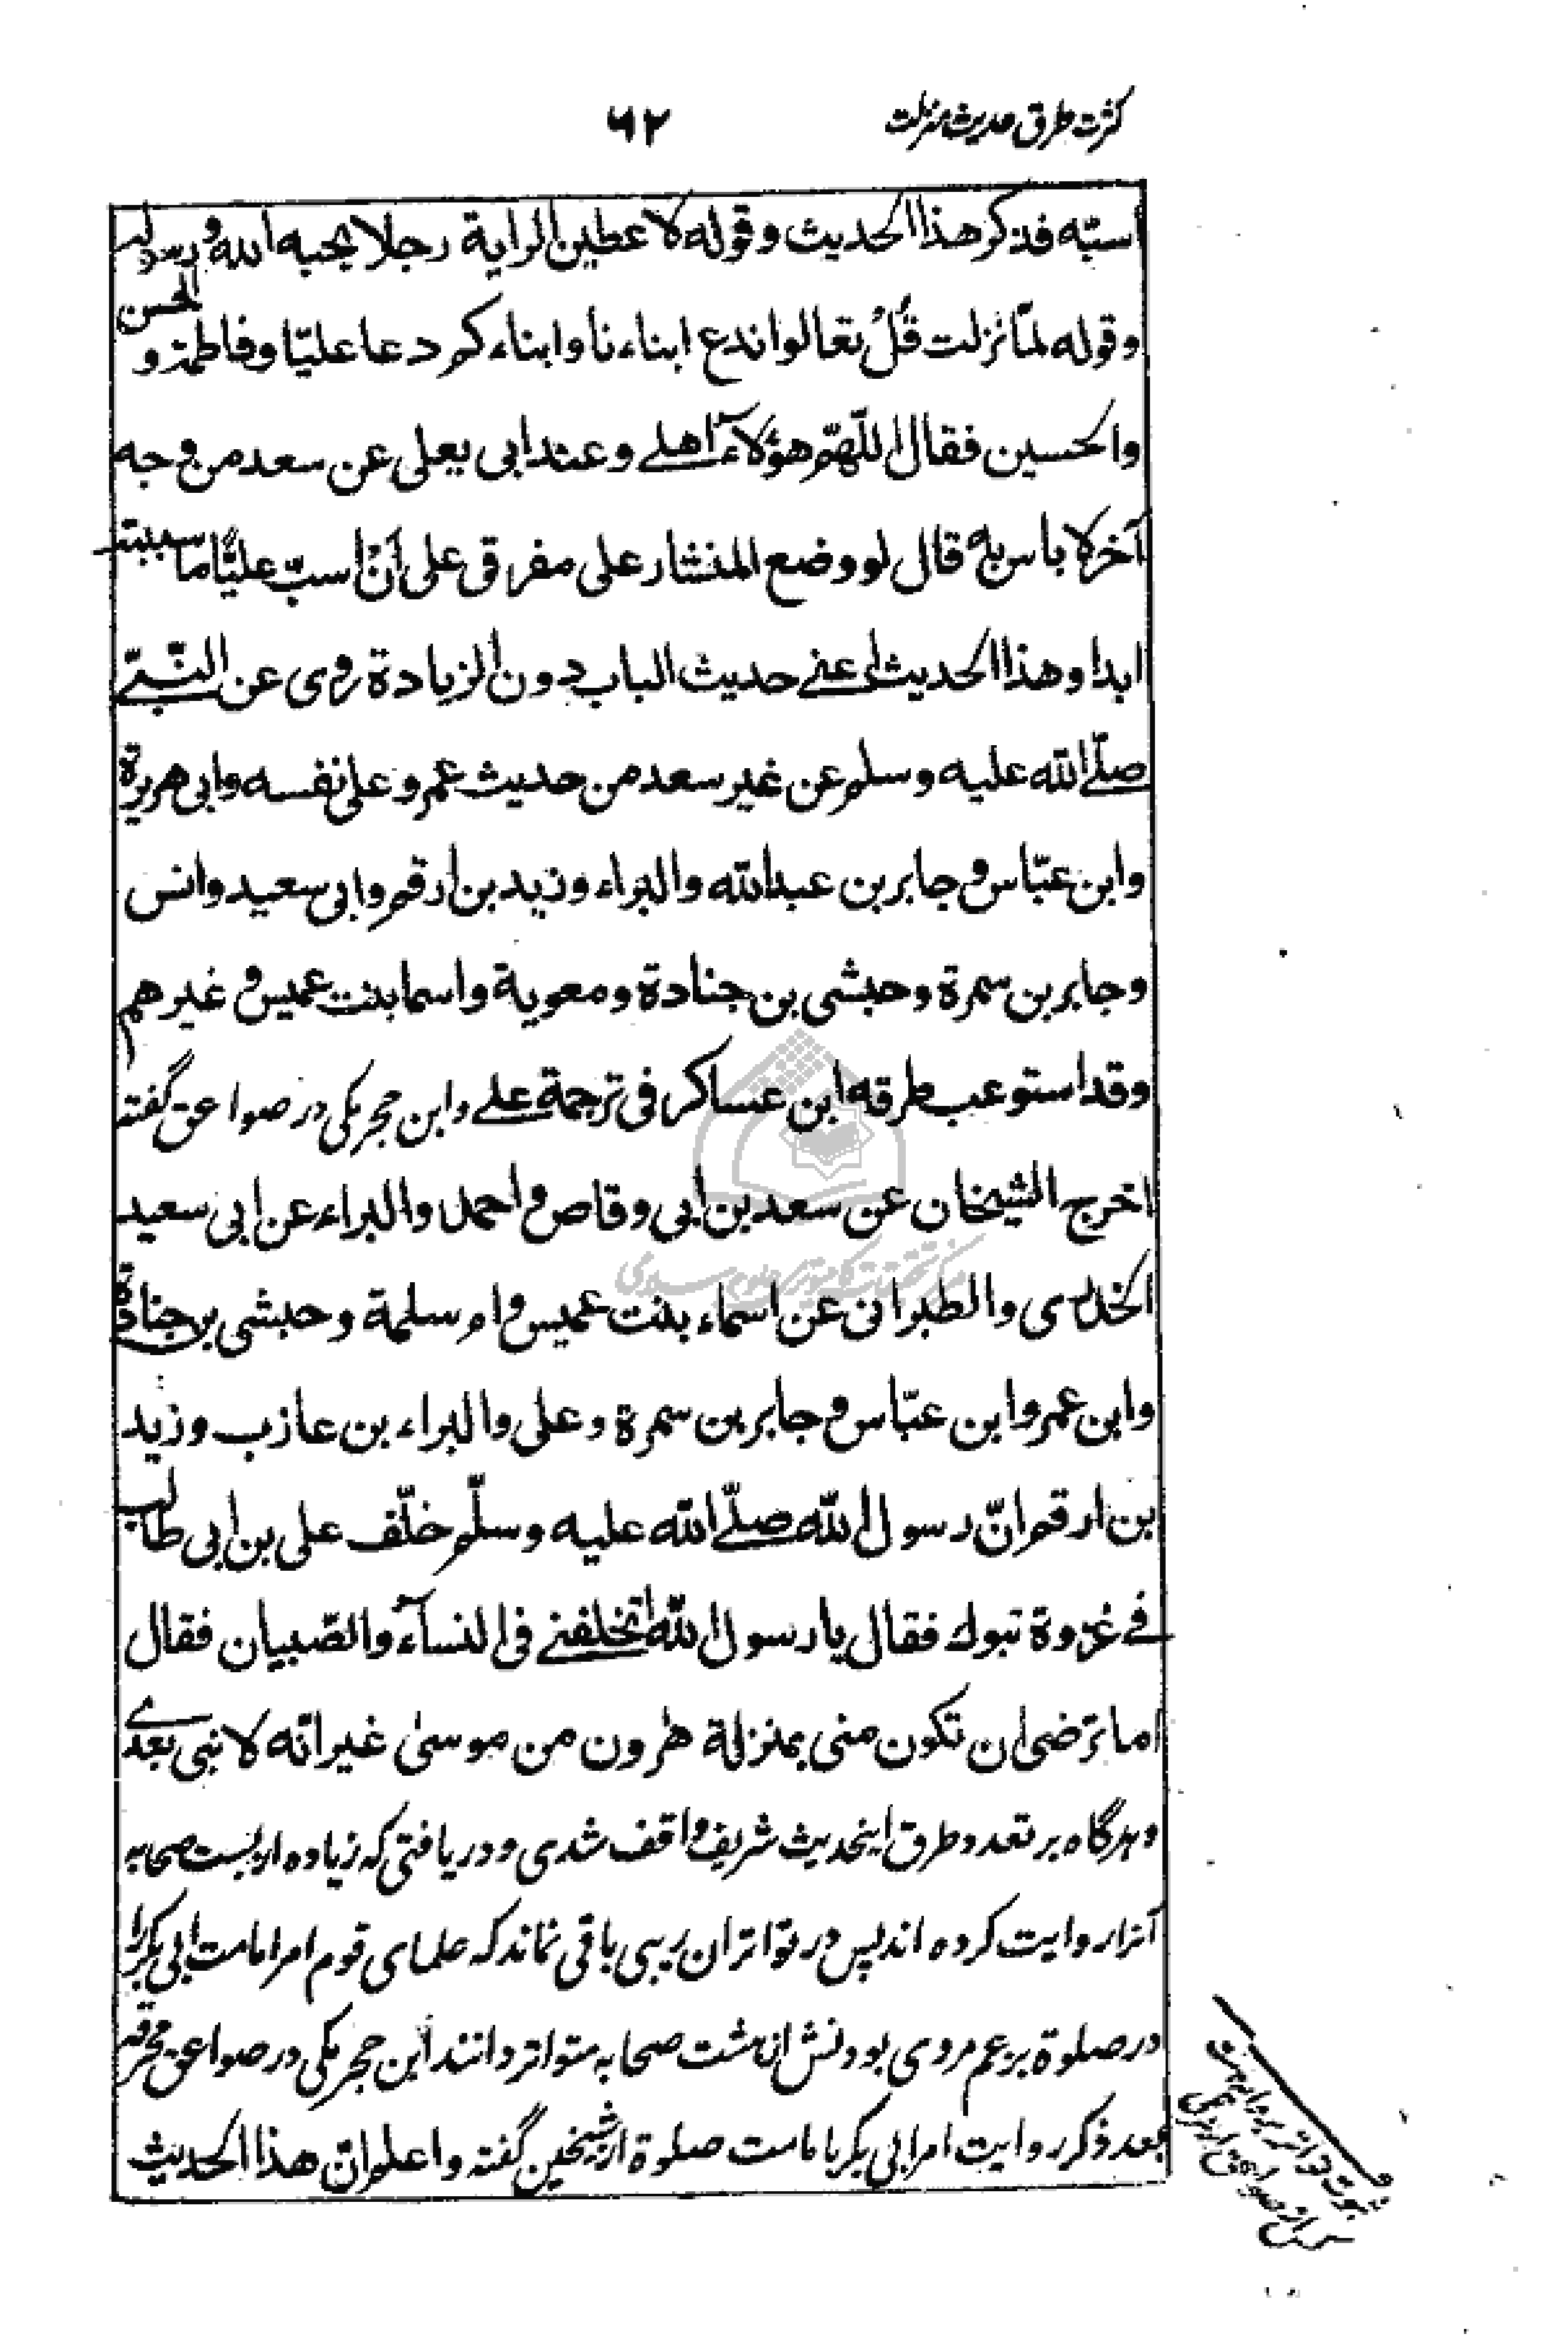 کثرت طرق حدیث منزلت
۶۲
اسبّه فذكر هذا الحديث وقوله لاعطين الراية رجلا يحبه الله ورسوله
وقوله لمّا نزلت قُلْ تعالوا ندع ابناءنا وابناءكم دعا عليّا وفاطمة والحسن
والحسين فقال اللّهمّ هؤلاء اهلے وعند ابى يعلى عن سعد من وجه
آخر لا باس به قال لو وضع المنشار على مفرقى على أنْ اسبّ عليًّا ما سببته
ابدا وهذا الحديث اعنے حديث الباب دون الزيادة روى عن النّبےّ
صلّے الله عليه وسلم عن غير سعد من حديث عمر وعلى نفسه وابى هريرة
وابن عبّاس وجابر بن عبدالله والبراء وزيد بن ارقم وابى سعيد وانس
وجابر بن سمرة وحبشى بن جنادة ومعوية واسما بنت عميس وغيرهم
وقد استوعب طرقه ابن عساكر فى ترجمة علے وابن حجر مکی در صواعق گفته
اخرج الشيخان عن سعد بن ابى وقاص واحمد والبراء عن ابى سعيد
الخدرى والطبرانى عن اسماء بنت عميس وام سلمة وحبشى بن جنادة
وابن عمر وابن عبّاس وجابر بن سمرة وعلى والبراء بن عازب وزيد
بن ارقم انّ رسول الله صلّے الله عليه وسلّم خلّف على بن ابى طالب
فے غزوة تبوك فقال يا رسول الله اتخلفنے فى النساء والصّبيان فقال
اما ترضى ان تكون منى بمنزلة هٰرون من موسىٰ غير انّه لا نبى بعدے
وہرگاہ بر تعدد طرق اینحدیث شریف واقف شدی و دریافتی که زیاده از بست صحابه
آنرا روایت کرده اند پس در تواتر ان ریبی باقی نماند که علمای قوم امر امامت ابی بکر را
در صلوة بزعم مروی بودنش از هشت صحابه متواتر دانند ابن حجر مکی در صواعق محرقه
بعد ذکر روایت امر ابی بکر بامامت صلوة از شیخین گفته واعلم انّ هذا الحديث